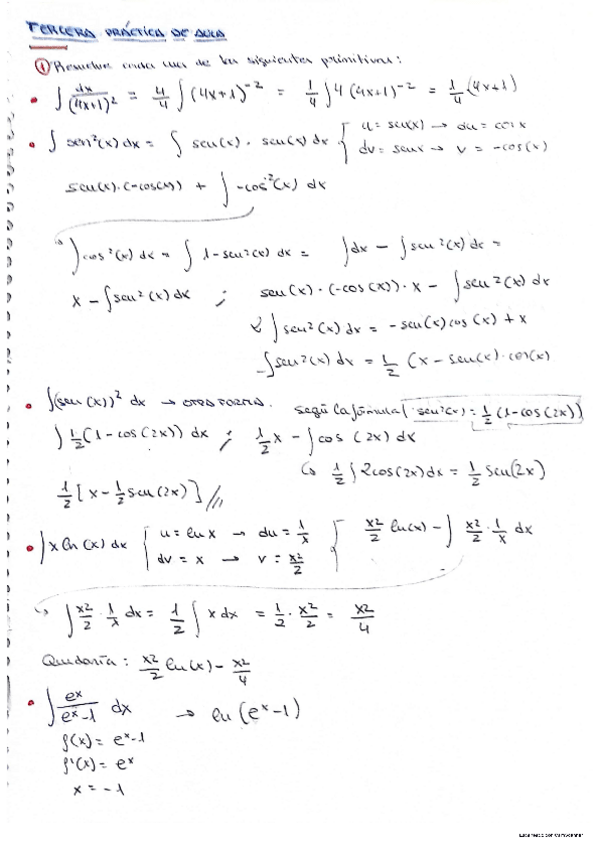 TERCERA PRÁCTICA DE AULA
① Resuelve cada una de las siguientes primitivas:
• ∫ dx/(4x+1)² = 4/4 ∫ (4x+1)⁻² = 1/4 ∫ 4 (4x+1)⁻² = 1/4 (4x+1)
• ∫ sen²(x) dx = ∫ sen(x) · sen(x) dx { u = sen(x) → du = cos x
dv = sen x → v = -cos(x)
sen(x)·(-cos(x)) + ∫ -cos²(x) dx
∫ cos²(x) dx = ∫ 1-sen²(x) dx = ∫ dx - ∫ sen²(x) dx =
x - ∫ sen²(x) dx ; sen(x)·(-cos(x))·x - ∫ sen²(x) dx
2 ∫ sen²(x) dx = -sen(x) cos(x) + x
∫ sen²(x) dx = 1/2 (x - sen(x)·cos(x)
• ∫ (sen(x))² dx → OTRA FORMA. Según la fórmula ( sen²(x) = 1/2 (1-cos(2x))
∫ 1/2 (1-cos(2x)) dx ; 1/2 x - ∫ cos (2x) dx
↳ 1/2 ∫ 2cos(2x) dx = 1/2 sen(2x)
1/2 [ x - 1/2 sen(2x) ] //
• ∫ x ln(x) dx { u = ln x → du = 1/x [ x²/2 ln(x) - ∫ x²/2 · 1/x dx
dv = x → v = x²/2
↳ ∫ x²/2 · 1/x dx = 1/2 ∫ x dx = 1/2 · x²/2 = x²/4
Quedaría: x²/2 ln(x) - x²/4
• ∫ eˣ/(eˣ-1) dx → ln (eˣ-1)
f(x) = eˣ-1
f'(x) = eˣ
x = -1